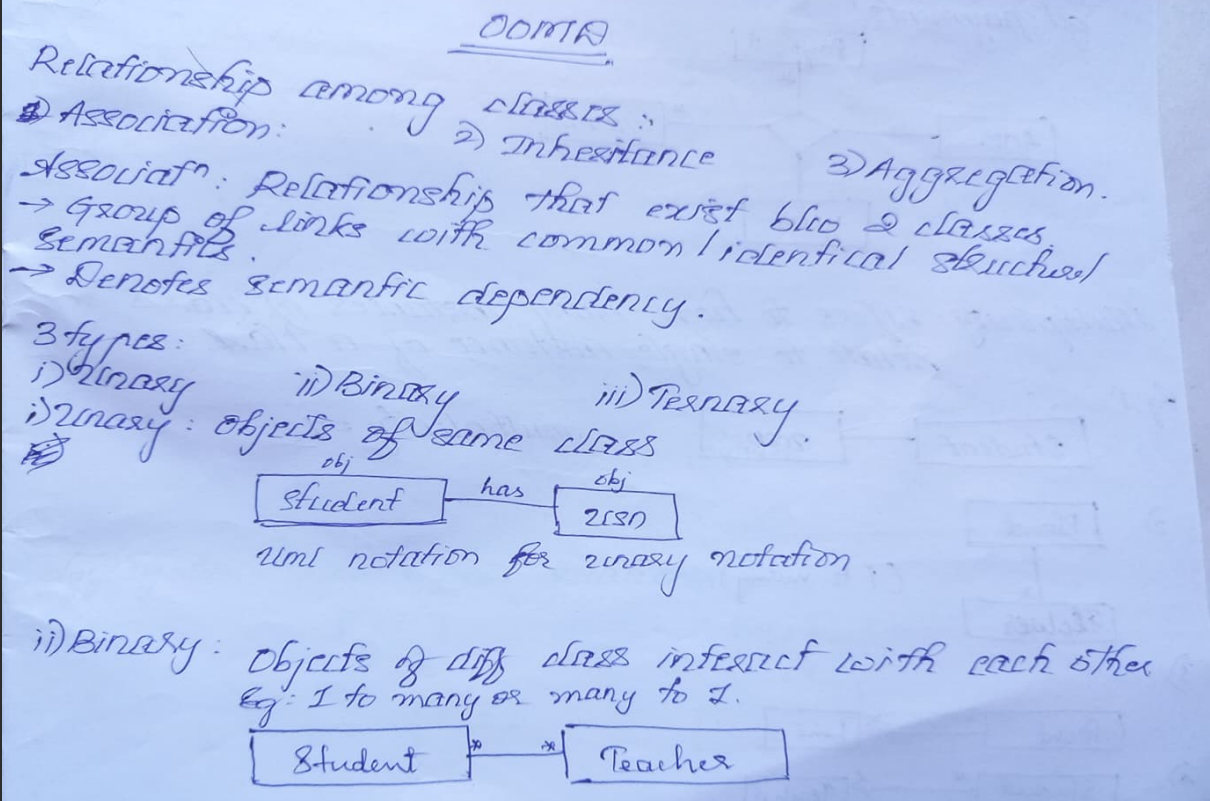 OOMD
Relationship among classes:
1) Association: 2) Inheritance 3) Aggregation.
Associatn: Relationship that exist b/w 2 classes.
→ Group of links with common/identical structure/
semantics.
→ Denotes semantic dependency.
3 types:
i) Unary ii) Binary iii) Ternary
i) Unary: Objects of same class
obj obj
Student has USN
UML notation for unary notation
ii) Binary: Objects of diff class interact with each other
Eg: 1 to many or many to 1.
Student * * Teacher